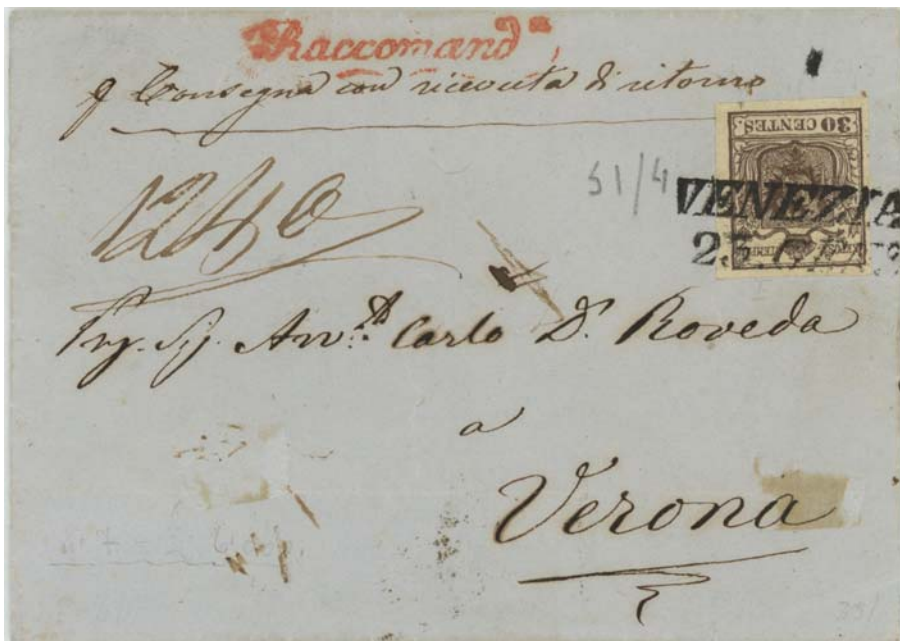 Raccomand.ª
p Consegna con ricevuta di ritorno
30 CENTES.
51/4
VENEZIA
1240
Preg. Sig. Avv.to Carlo D.r Roveda
a
Verona